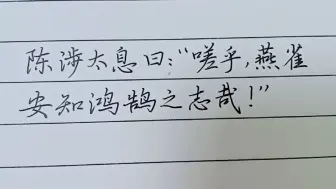 陈涉太息曰:“嗟乎,燕雀
安知鸿鹄之志哉!”